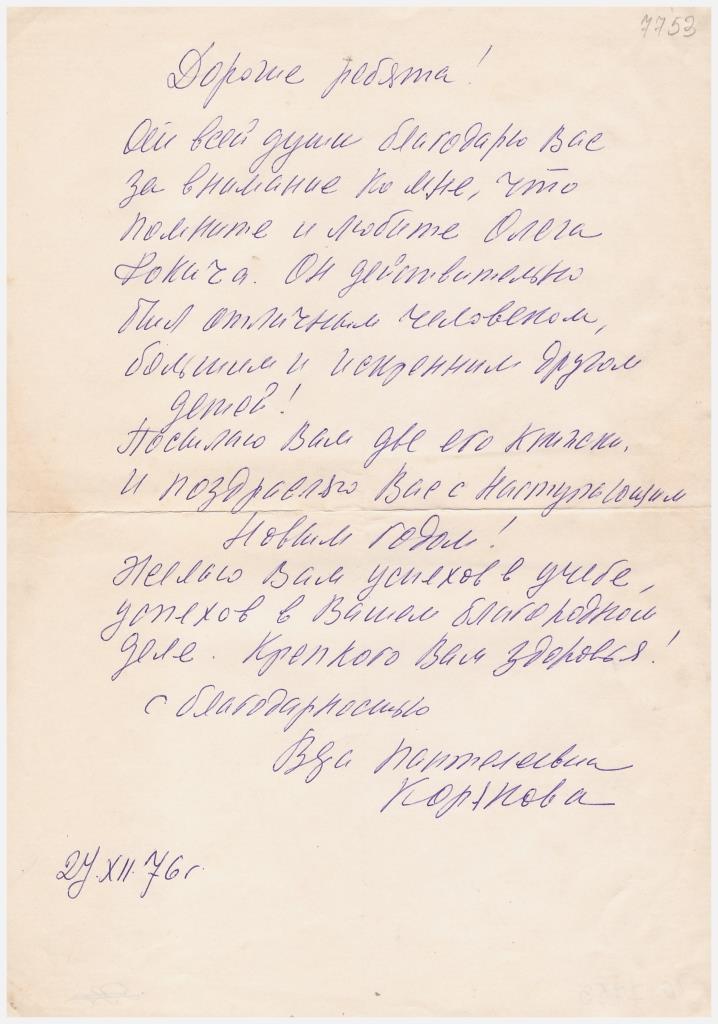 7753
Дорогие ребята!
От всей души благодарю Вас
за внимание ко мне, что
помните и любите Олега
Фокича. Он действительно
был отличным человеком,
большим и искренним другом
детей!
Посылаю Вам две его книжки.
И поздравляю Вас с Наступающим
Новым годом!
Желаю Вам успехов в учебе,
успехов в Вашем благородном
деле. Крепкого Вам здоровья!
С благодарностью
Пантелеевна
Корякова
27.XII.76г.